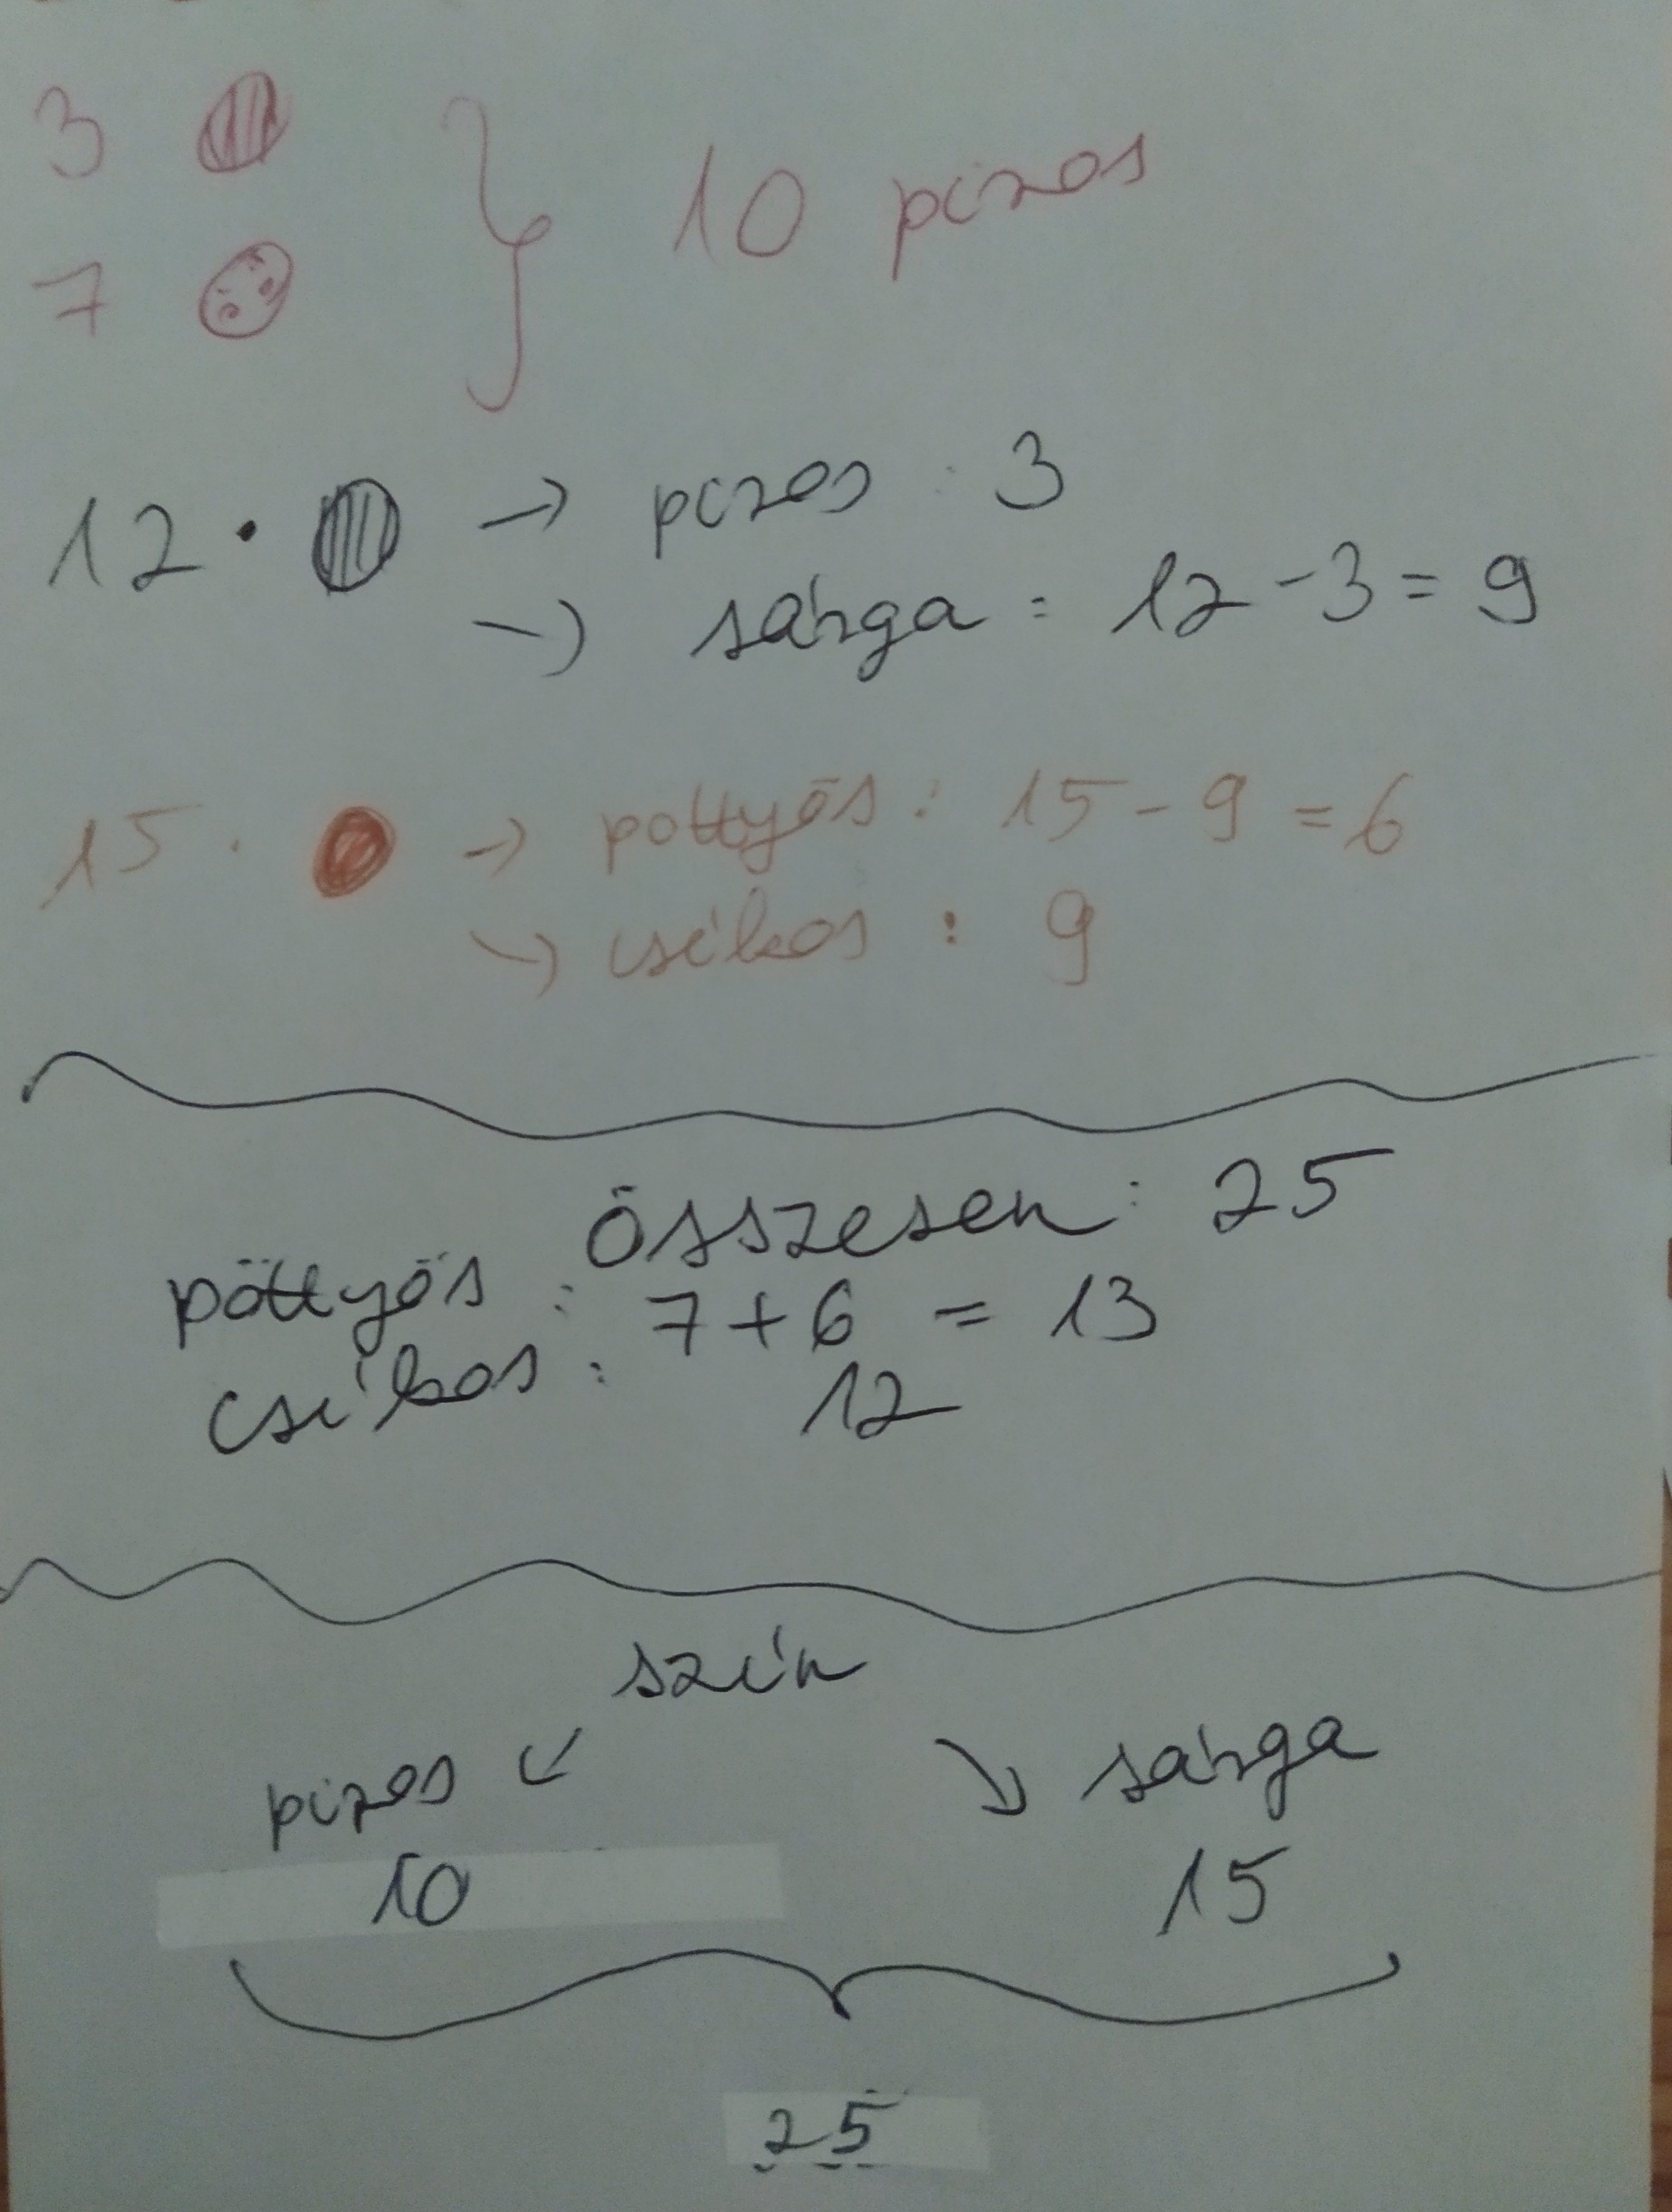 3
7
10 piros
12 · → piros : 3
→ sárga : 12 - 3 = 9
15 · → pöttyös : 15 - 9 = 6
→ csíkos : 9
összesen : 25
pöttyös : 7 + 6 = 13
csíkos : 12
szín
piros ↙ ↘ sárga
10 15
25